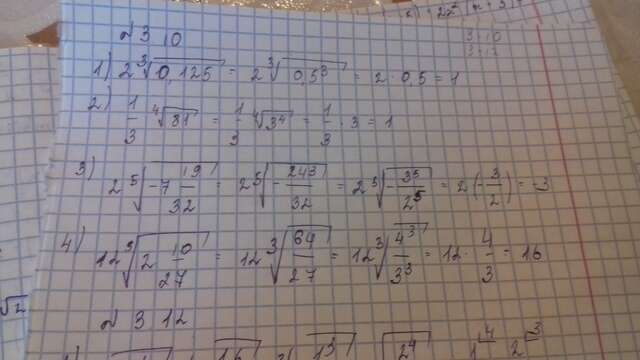 № 310
1) 2∛0,125 = 2∛0,5³ = 2 · 0,5 = 1
2) 1/3 ⁴√81 = 1/3 ⁴√3⁴ = 1/3 · 3 = 1
3) 2⁵√-7 19/32 = 2⁵√- 243/32 = 2⁵√- 3⁵/2⁵ = 2(- 3/2) = 3
4) 12³√2 10/27 = 12³√64/27 = 12³√4³/3³ = 12 · 4/3 = 16
№ 312